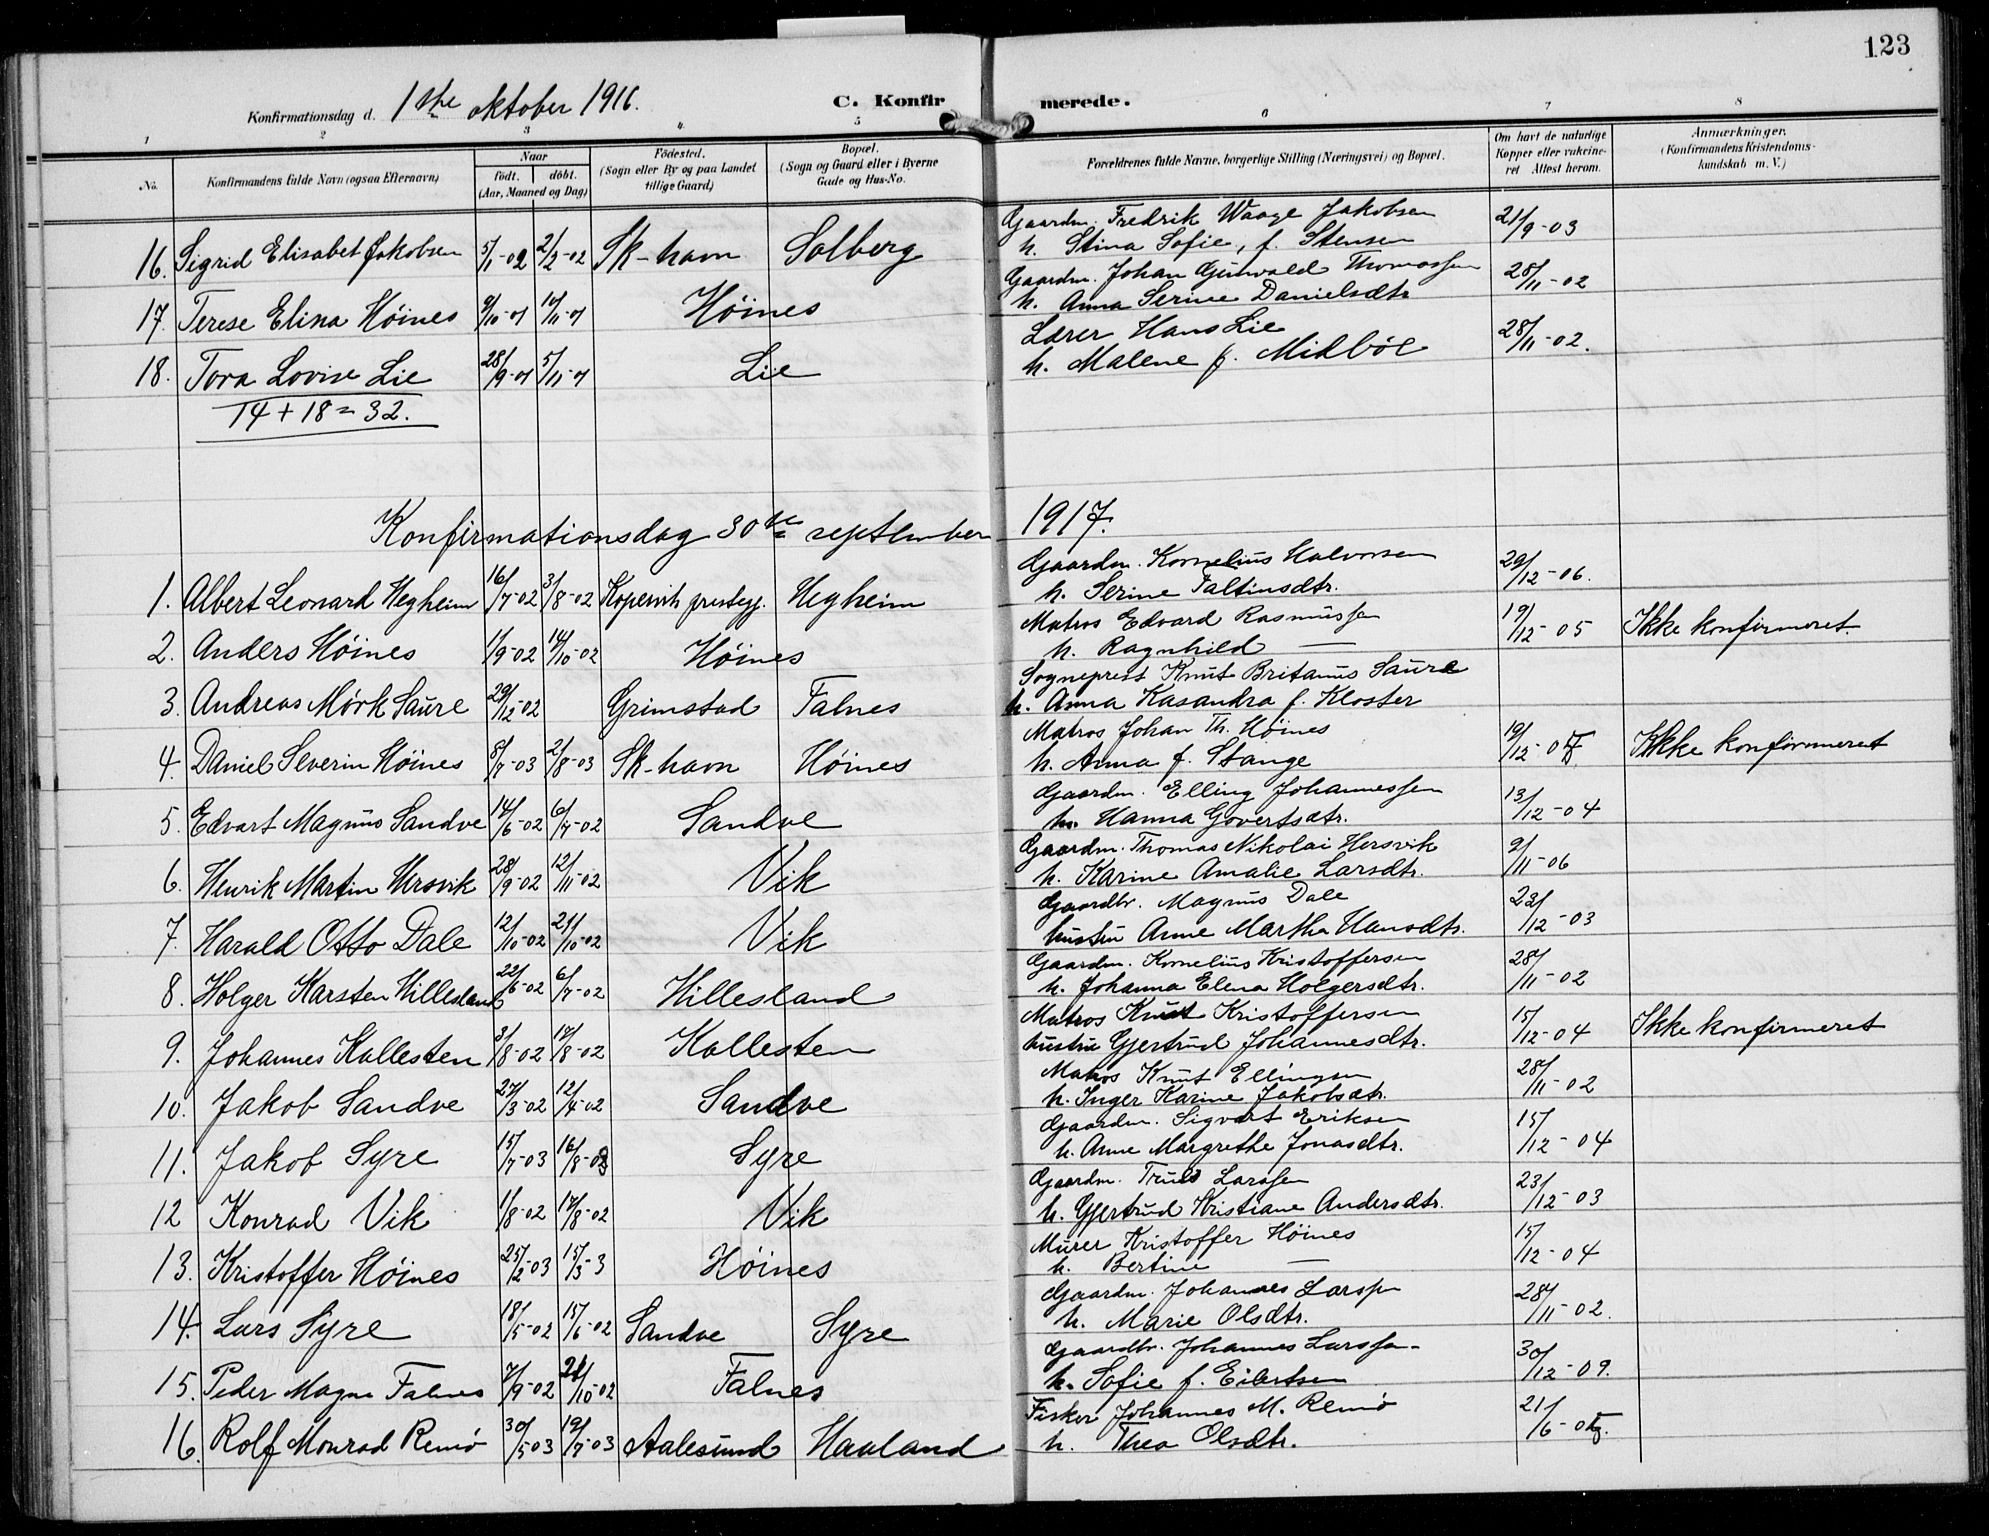 123
Konfirmationsdag d. 1ste oktober 1916. C. Konfirmerede.
1 2 3 4 5 6 7 8
No. Konfirmandens fulde Navn (ogsaa Efternavn) Naar födt. döbt. (Aar, Maaned og Dag) Födested. (Sogn eller By og paa Landet tillige Gaard) Bopæl. (Sogn og Gaard eller i Byerne Gade og Hus-No. Forældrenes fulde Navne, borgerlige Stilling (Næringsvei) og Bopæl. Om havt de naturlige Kopper eller vakcineret Attest herom. Anmærkninger. (Konfirmandens Kristendomskundskab m. V.)
16. Sigrid Elisabet Jakobsen 5/11-02 2/2-02 Sk-havn Solberg Gaardm. Fredrik Waage Jakobsen 21/9-03
h. Stina Sofie, f. Stensen
17. Terese Elina Höines 9/10-01 10/11-01 Höines Gaardm. Johan Gunvald Thomassen 28/11-02
h. Anna Serine Danielsdtr
18. Tora Lovise Lie 28/9-01 5/11-01 Lie Lærer Hans Lie 28/11-02.
h. Malene f. Midböe
14 + 18 = 32.
Konfirmationsdag 30te september 1917.
1. Albert Leonard Hegheim 16/7-02 3/8-02 Kopervik prestegj. Hegheim Gaardm. Kornelius Halvorsen 29/12-06.
h. Serine Faltinsdtr.
2. Anders Höines 1/9-02 14/10-02 Höines Matros Edvard Rasmussen 19/12-05 Ikke konfirmeret.
h. Ragnhild —
3. Andreas Mörk Saure 29/12-02 Grimstad Falnes Sogneprest Knut Britanus Saure
h. Anna Kasandra f. Kloster
4. Daniel Severin Höines 8/7-03 2/8-03 Sk-havn Höines Matros Johan Th. Höines 19/12-05 Ikke konfirmeret
h. Anna f. Stange
5. Edvart Magnus Sandve 14/6-02 6/7-02 Sandve Gaardm. Elling Johannessen 13/12-04
h. Hanna Govertsdtr.
6. Henrik Martin Hersvik 28/9-02 12/11-02 Vik Gaardm. Thomas Nikolai Hersvik 9/11-06
h. Karine Amalie Larsdtr.
7. Harald Otto Dale 12/10-02 21/10-02 Vik Gaardbr. Magnus Dale 23/12-03
hustru Anne Martha Hansdtr.
8. Holger Karsten Hillesland 22/6-02 6/7-02 Hillesland Gaardm. Kornelius Kristoffersen 28/11-02
h. Johanna Elena Holgersdtr.
9. Johannes Kallesten 3/8-02 18/8-02 Kallesten Matros Knut Kristoffersen 15/12-04 Ikke konfirmeret
hustru Gjertrud Johannesdtr.
10. Jakob Sandve 27/3-02 12/4-02 Sandve Matros Knut Ellingsen 28/11-02
h. Inger Karine Jakobsdtr.
11. Jakob Syre 15/7-03 16/8-03 Syre Gaardm. Sigvart Eriksen 15/12-04
h. Anne Margrethe Jonasdtr.
12 Konrad Vik 1/8-02 17/8-02 Vik Gaardm. Truls Larssen 23/12-03
h. Gjertrud Kristiane Andersdtr.
13. Kristoffer Höines 25/2-03 15/3-3 Höines Murer Kristoffer Höines 15/12-04
h. Bertine —
14. Lars Syre 18/5-02 15/6-02 Sandve Syre Gaardm. Johannes Larssen 28/11-02.
h. Marie Olsdtr.
15. Peder Magne Falnes 7/9-02 21/10-02 Falnes Gaardbr. Johannes Larssen 30/12-09.
h. Sofie f. Eilertsen
16. Rolf Monrad Remö 30/5-03 19/7-03 Aalesund Haaland Fisker Johannes M. Remö 21/6-05
h. Thea Olsdtr.